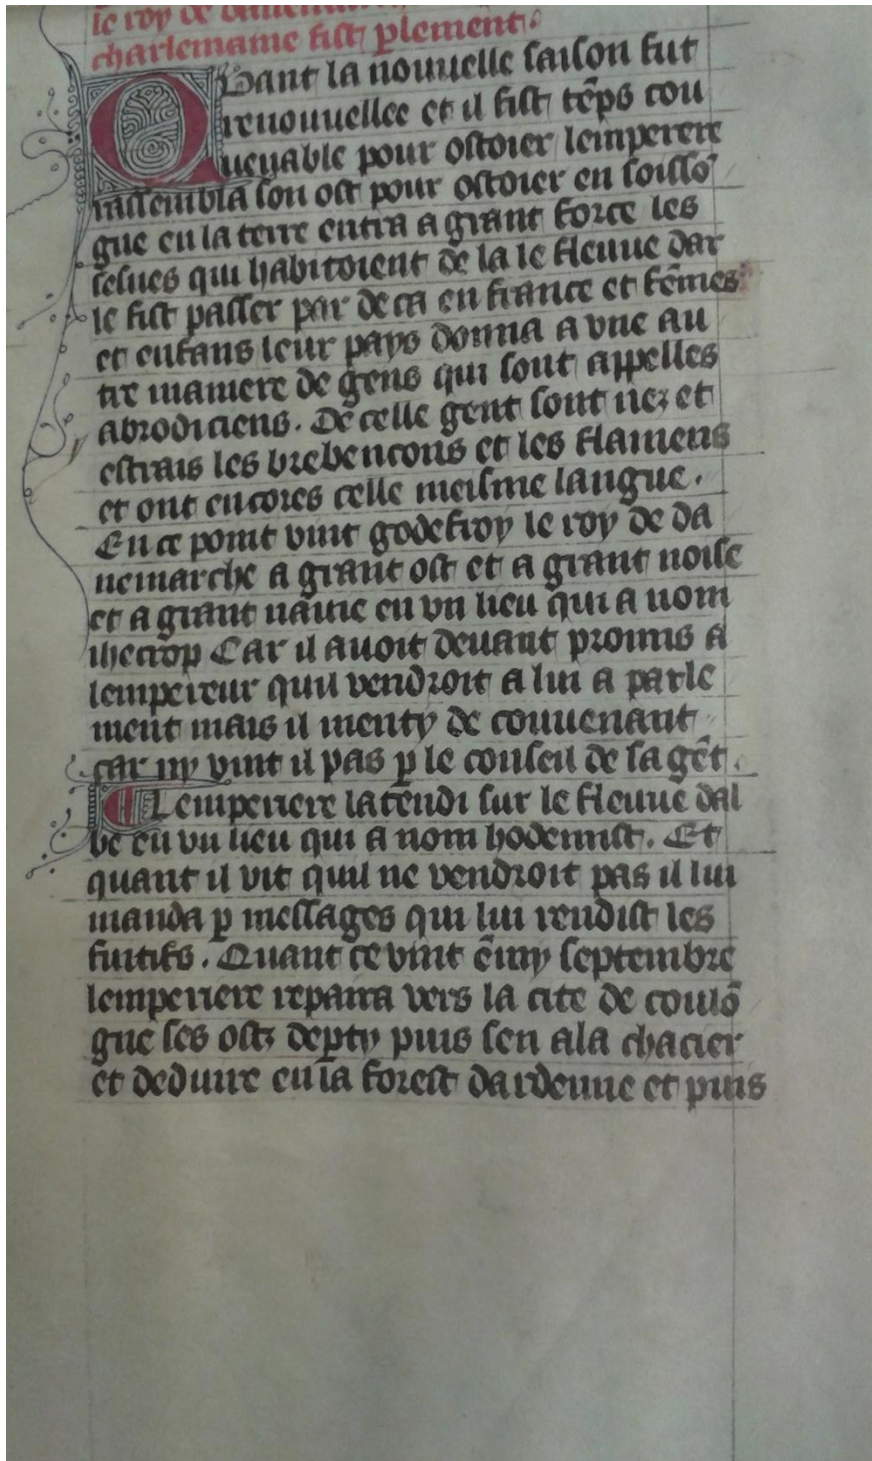 le roy de danemarche
charlemaine fist ꝑlement.
Quant la nouuelle saison fut
renouuellee et il fist tēps cou
uenable pour ostoier lemperere
rassembla son ost pour ostoier en soissō
gue en la terre entra a grant force les
sesnes qui habitoient de la le fleuue dar
le fist passer par de ca en france et fēmes
et enfans leur pays donna a vne au
tre maniere de gens qui sont appelles
abrodiciens. De celle gent sont nez et
estrais les brebencons et les flamens
et ont encores celle meisme langue.
En ce point vint godefroy le roy de da
nemarche a grant ost et a grant noise
et a grant nauie en vn lieu qui a nom
thecrop Car il auoit deuant promis a
lempereur quil vendroit a lui a parle
ment mais il menty de conuenant
car ny vint il pas ꝑ le conseil de sa gēt.
Lemperiere latendi sur le fleuue dal
be en vn lieu qui a nom hodennist. Et
quant il vit quil ne vendroit pas il lui
manda ꝑ messages qui lui rendist les
fuitifs. Quant ce vint ēmy septembre
lemperiere repaira vers la cite de coulō
gne ses ostz deꝑty puis sen ala chacier
et deduire en la forest dardenne et puis